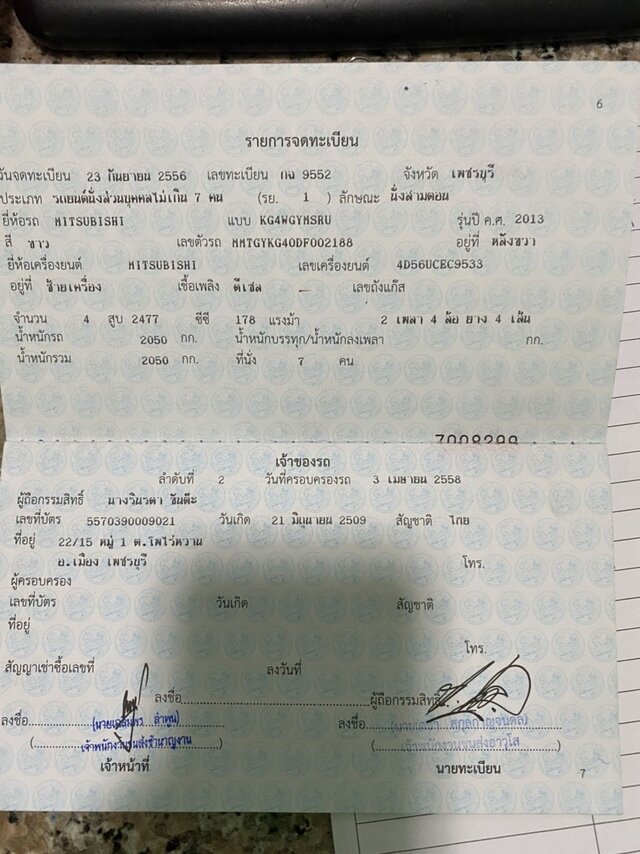 6
รายการจดทะเบียน
วันจดทะเบียน 23 กันยายน 2556 เลขทะเบียน กจ 9552 จังหวัด เพชรบุรี
ประเภท รถยนต์นั่งส่วนบุคคลไม่เกิน 7 คน (รย. 1 ) ลักษณะ นั่งสามตอน
ยี่ห้อรถ MITSUBISHI แบบ KG4WGYMSRU รุ่นปี ค.ศ. 2013
สี ขาว เลขตัวรถ MMTGYKG40DF002188 อยู่ที่ หลังขวา
ยี่ห้อเครื่องยนต์ MITSUBISHI เลขเครื่องยนต์ 4D56UCEC9533
อยู่ที่ ซ้ายเครื่อง เชื้อเพลิง ดีเซล เลขถังแก๊ส
จำนวน 4 สูบ 2477 ซีซี 178 แรงม้า 2 เพลา 4 ล้อ ยาง 4 เส้น
น้ำหนักรถ 2050 กก. น้ำหนักบรรทุก/น้ำหนักลงเพลา กก.
น้ำหนักรวม 2050 กก. ที่นั่ง 7 คน
เจ้าของรถ
ลำดับที่ 2 วันที่ครอบครองรถ 3 เมษายน 2558
ผู้ถือกรรมสิทธิ์ นางรินรดา ขันต๊ะ
เลขที่บัตร 5570390009021 วันเกิด 21 มิถุนายน 2509 สัญชาติ ไทย
ที่อยู่ 22/15 หมู่ 1 ต.โพไร่หวาน
อ.เมือง เพชรบุรี โทร.
ผู้ครอบครอง
เลขที่บัตร วันเกิด สัญชาติ
ที่อยู่
โทร.
สัญญาเช่าซื้อเลขที่ ลงวันที่
ลงชื่อ ผู้ถือกรรมสิทธิ์
ลงชื่อ ลงชื่อ
เจ้าพนักงานขนส่งชำนาญงาน เจ้าพนักงานขนส่งอาวุโส
เจ้าหน้าที่ นายทะเบียน
7